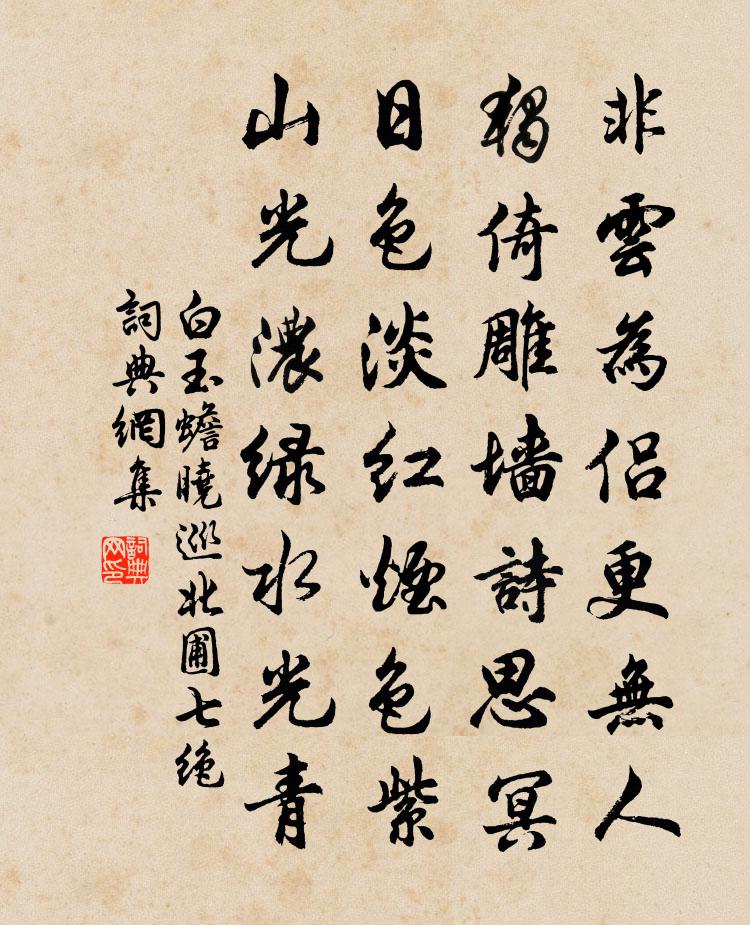 非雲為侶更無人
獨倚雕墙詩思冥
日色淡红煙色紫
山光濃绿水光青
白玉蟾曉巡北圃七绝
詞典網集
詞典
网印